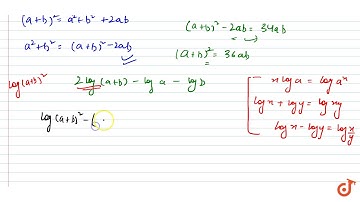 (a+b)² = a²+b² + 2ab
a²+b² = (a+b)² - 2ab
(a+b)² - 2ab = 34ab
(a+b)² = 36ab
log(a+b)²
2log(a+b) - log a - log b
log(a+b)² - (
x log a = log aˣ
log x + log y = log xy
log x - log y = log x/y